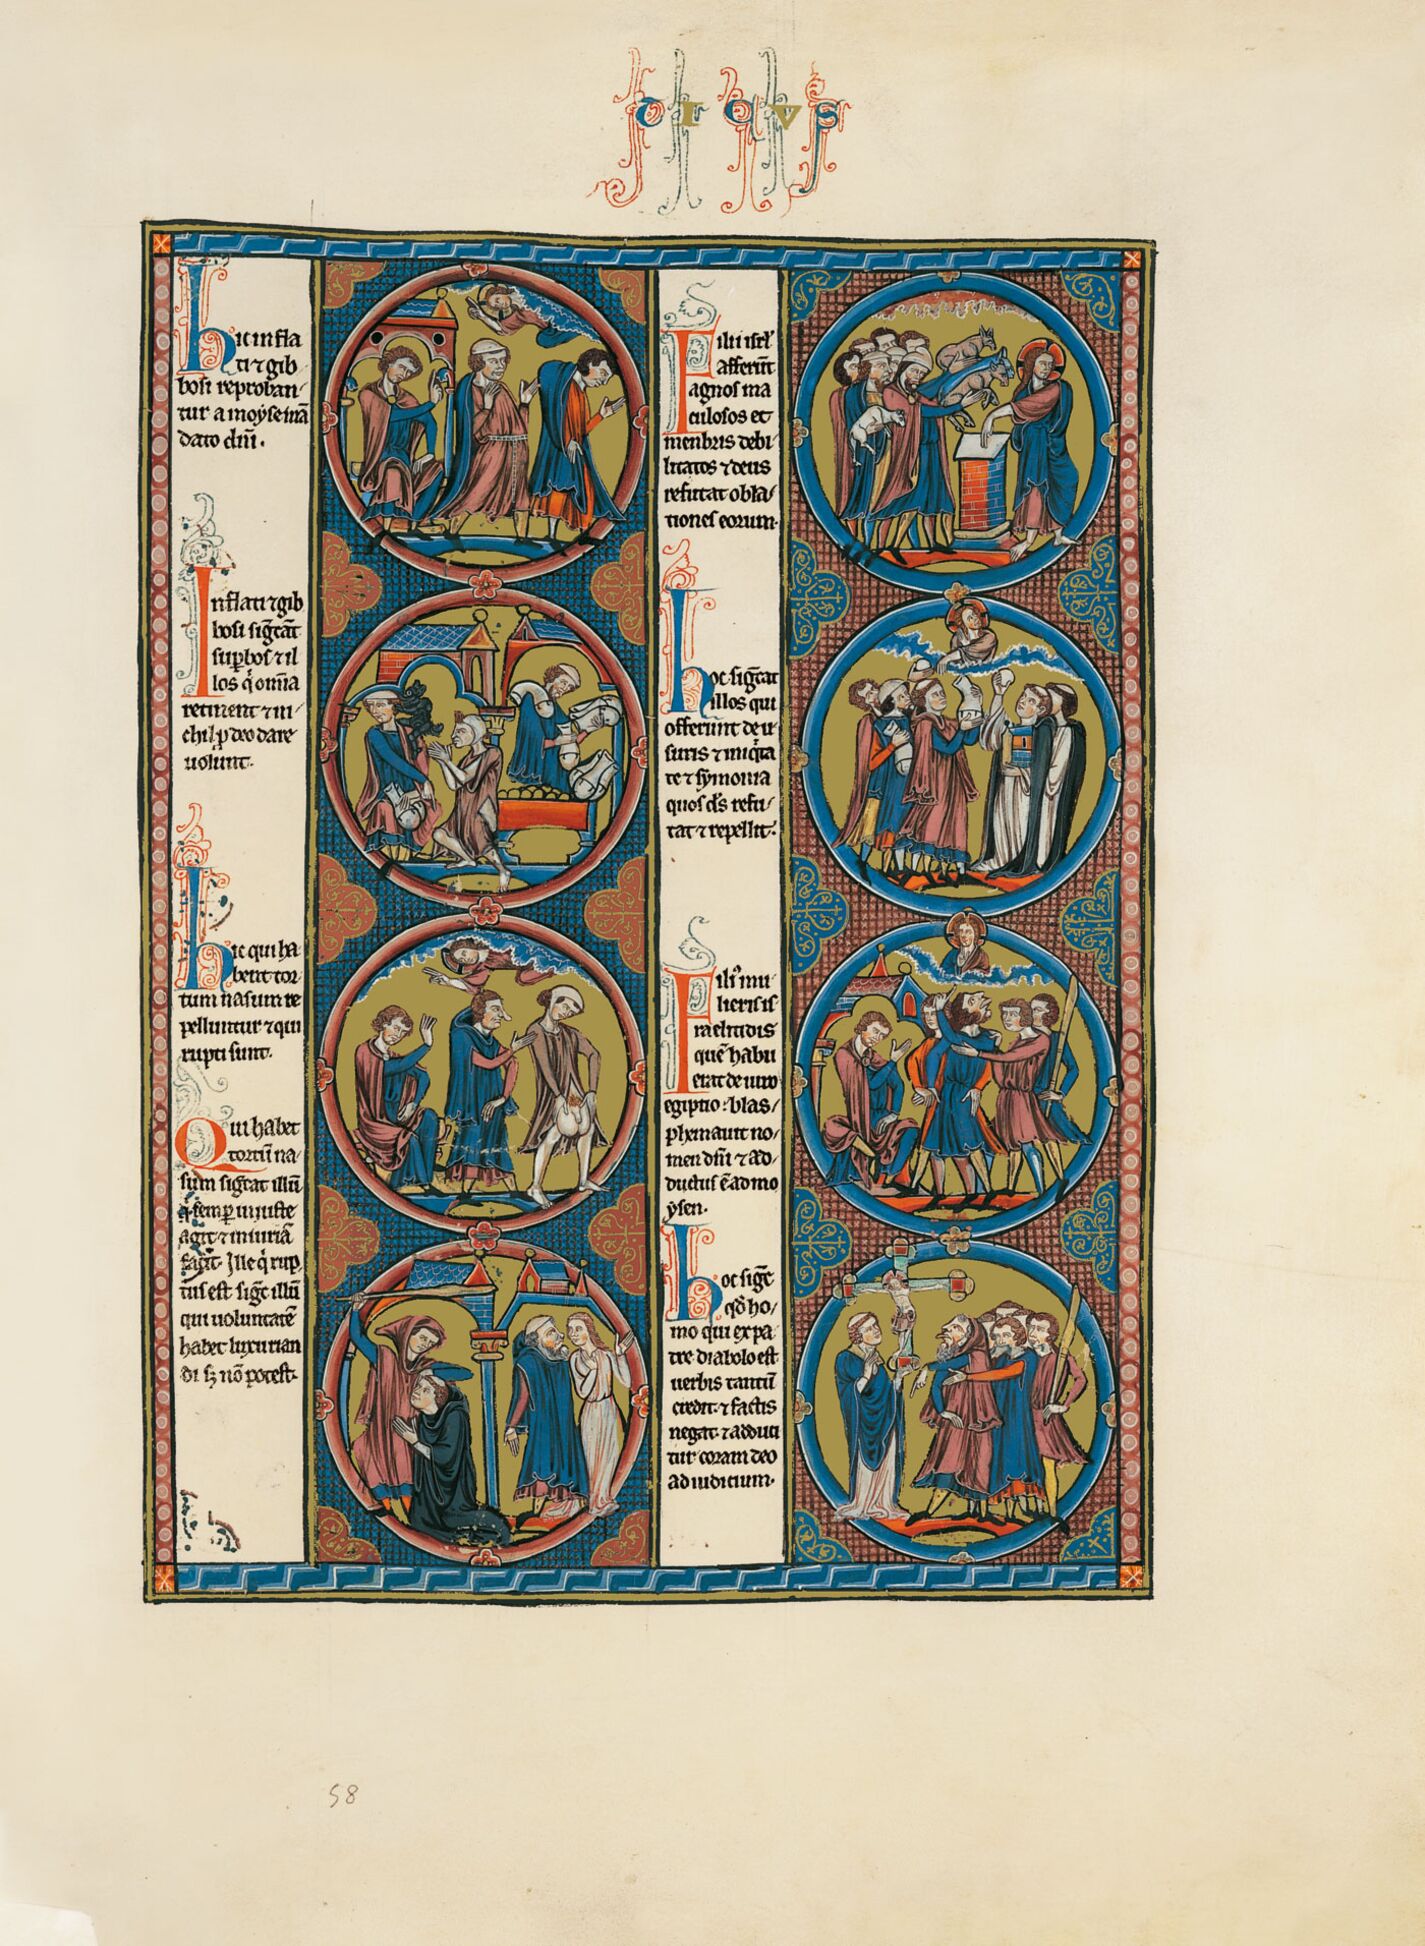 OIQVS
hic infla
ti ⁊ gib
bosi reproban
tur a moyse mā
dato dn̄i.
Inflati ⁊ gib
bosi sig̅cāt
sup̱bos ⁊ il
los q̇ om̅ia
retinent ⁊ ni
chil ꝓ deo dare
uolunt.
hic qui ha
bent tor
tum nasum re
pelluntur ⁊ qui
rupti sunt.
Qui habet
tortū na
sum sig̅cat illū
semꝑ iniuste
agit ⁊ iniuriā
facit. Ille q̇ rup
tus est sig̅c̅ illū
qui uoluntatē
habet luxurian
di sꝫ nō potest.
Filii isrl̅
afferūt
agnos ma
culosos et
menbris debi
litatos ⁊ deus
refutat obla
tiones eorum.
hoc sig̅cat
illos qui
offerunt de u
suris ⁊ iniq̇ta
te ⁊ symonia
quos d̅s refu
tat ⁊ repellit.
Filiꝰ mu
lieris is
raelitidis
quē habu
erat de uiro
egiptio blas
phemauit no
men dn̄i ⁊ ad
ductus ē ad mo
ysen.
hoc sig̅c̅
qđ ho
mo qui ex pa
tre diabolo est
uerbis tantū
credit. ⁊ factis
negat. ⁊ adduci
tur coram deo
ad iudicium.
58